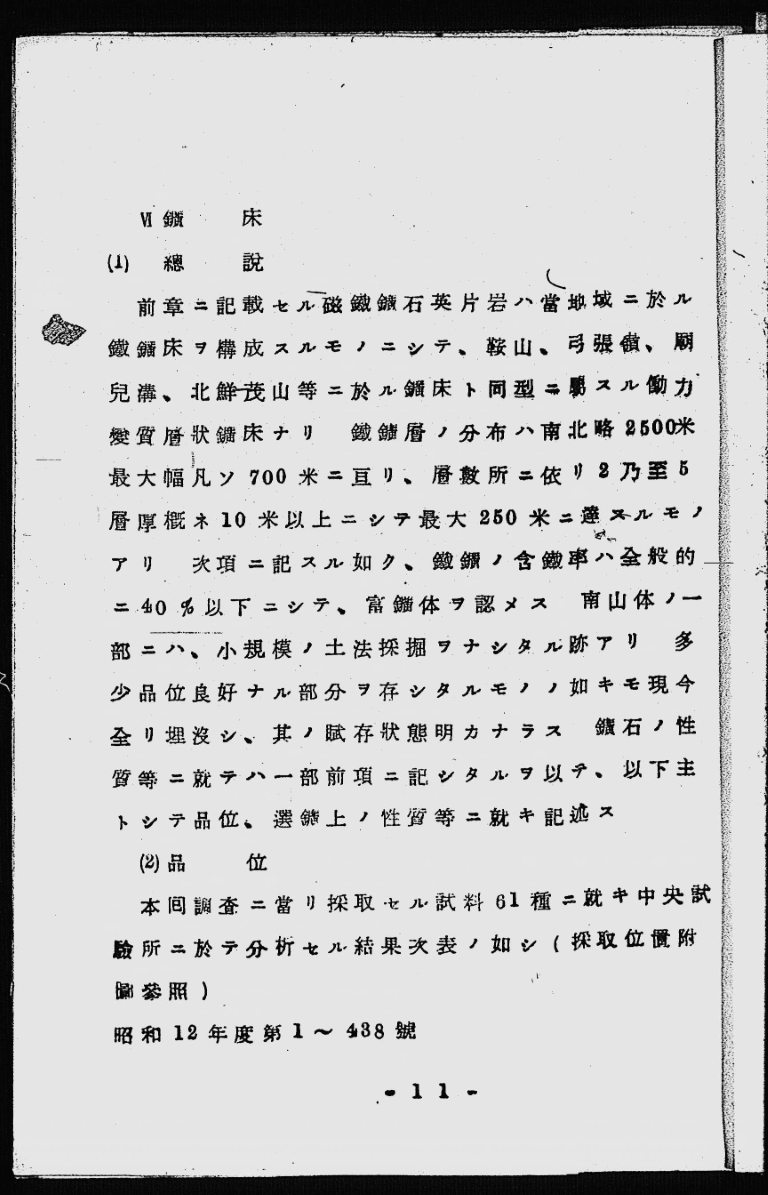 Ⅵ 鑛床
(1) 總說
前章ニ記載セル磁鐵鑛石英片岩ハ當地域ニ於ル
鐵鑛床ヲ構成スルモノニシテ、鞍山、弓張嶺、廟
兒溝、北鮮茂山等ニ於ル鑛床ト同型ニ屬スル働力
變質層狀鑛床ナリ 鐵鑛層ノ分布ハ南北略2500米
最大幅凡ソ700米ニ亘リ、層數所ニ依リ2乃至5
層厚概ネ10米以上ニシテ最大250米ニ達スルモノ
アリ 次項ニ記スル如ク、鐵鑛ノ含鐵率ハ全般的
ニ40%以下ニシテ、富鑛体ヲ認メス 南山体ノ一
部ニハ、小規模ノ土法採掘ヲナシタル跡アリ 多
少品位良好ナル部分ヲ存シタルモノノ如キモ現今
全リ埋沒シ、其ノ賦存狀態明カナラス 鑛石ノ性
質等ニ就テハ一部前項ニ記シタルヲ以テ、以下主
トシテ品位、選鑛上ノ性質等ニ就キ記述ス
(2) 品位
本囘調査ニ當リ採取セル試料61種ニ就キ中央試
驗所ニ於テ分析セル結果次表ノ如シ(採取位置附
圖參照)
昭和12年度第1～438號
-11-